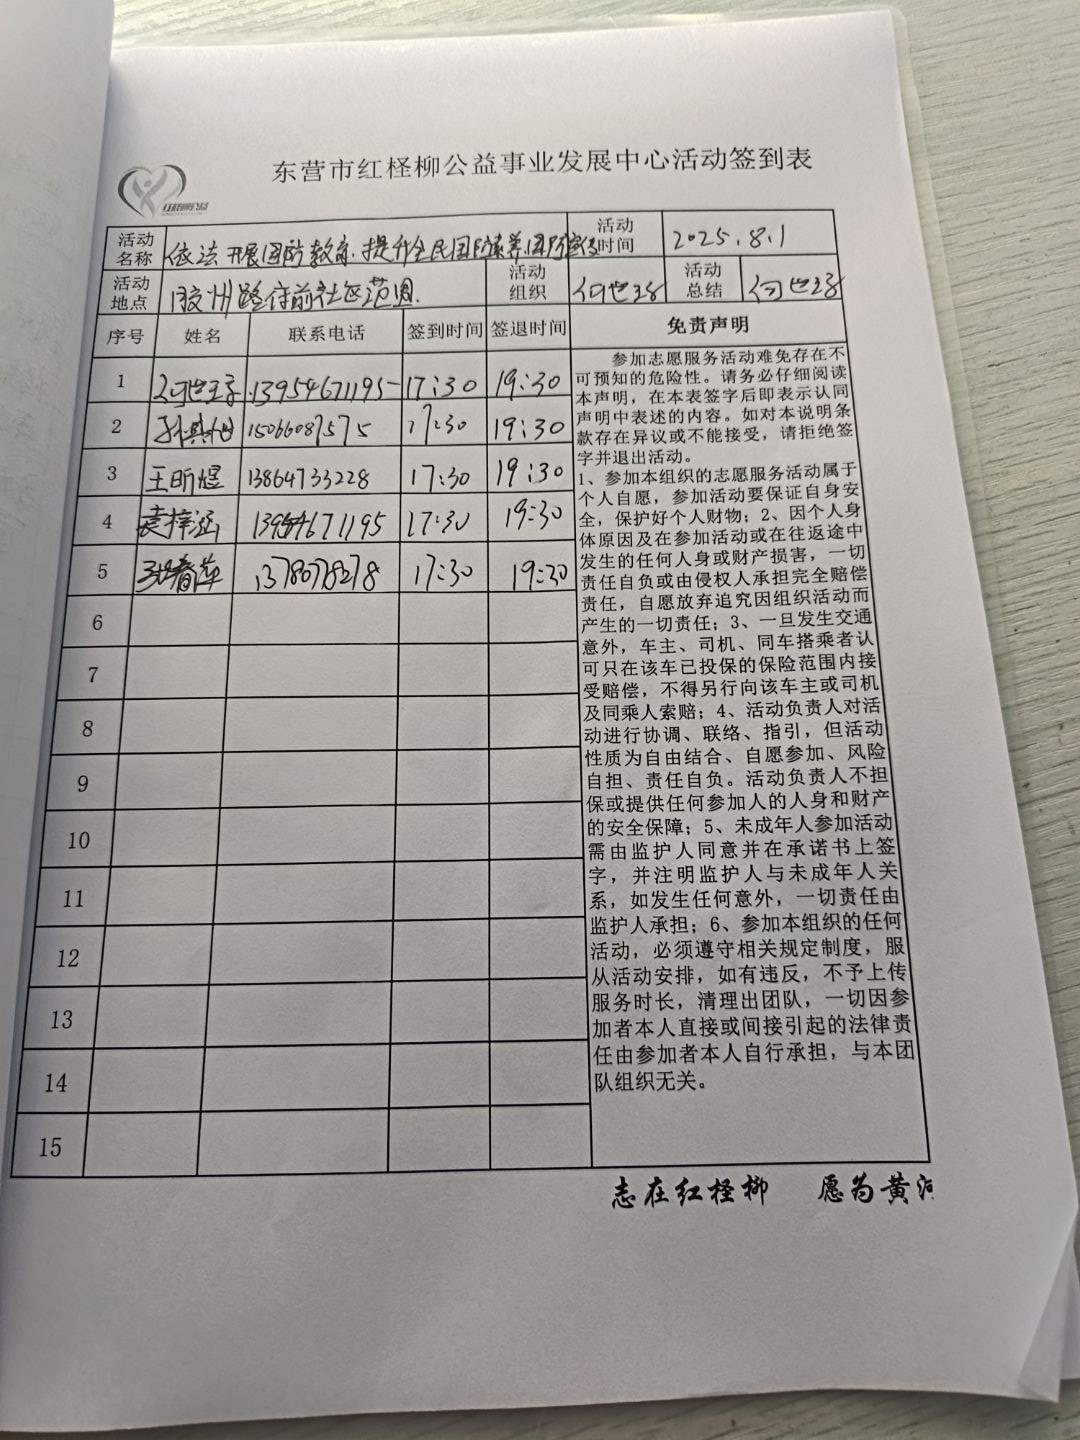 东营市红柽柳公益事业发展中心活动签到表
红柽柳公益
活动名称 依法开展国防教育.提升全民国防素养.国防宣传 活动时间 2025.8.1
活动地点 胶州路府前社区范围. 活动组织 何世 活动总结 何世
序号 姓名 联系电话 签到时间 签退时间 免责声明
1 何世 13954671195 17:30 19:30
2 孙 15066087575 17:30 19:30
3 王昕煜 13864733228 17:30 19:30
4 袁梓涵 13954671195 17:30 19:30
5 春萍 13780778278 17:30 19:30
6
7
8
9
10
11
12
13
14
15
参加志愿服务活动难免存在不
可预知的危险性。请务必仔细阅读
本声明，在本表签字后即表示认同
声明中表述的内容。如对本说明条
款存在异议或不能接受，请拒绝签
字并退出活动。
1、参加本组织的志愿服务活动属于
个人自愿，参加活动要保证自身安
全，保护好个人财物；2、因个人身
体原因及在参加活动或在往返途中
发生的任何人身或财产损害，一切
责任自负或由侵权人承担完全赔偿
责任，自愿放弃追究因组织活动而
产生的一切责任；3、一旦发生交通
意外，车主、司机、同车搭乘者认
可只在该车已投保的保险范围内接
受赔偿，不得另行向该车主或司机
及同乘人索赔；4、活动负责人对活
动进行协调、联络、指引，但活动
性质为自由结合、自愿参加、风险
自担、责任自负。活动负责人不担
保或提供任何参加人的人身和财产
的安全保障；5、未成年人参加活动
需由监护人同意并在承诺书上签
字，并注明监护人与未成年人关
系，如发生任何意外，一切责任由
监护人承担；6、参加本组织的任何
活动，必须遵守相关规定制度，服
从活动安排，如有违反，不予上传
服务时长，清理出团队，一切因参
加者本人直接或间接引起的法律责
任由参加者本人自行承担，与本团
队组织无关。
志在红柽柳 愿为黄河